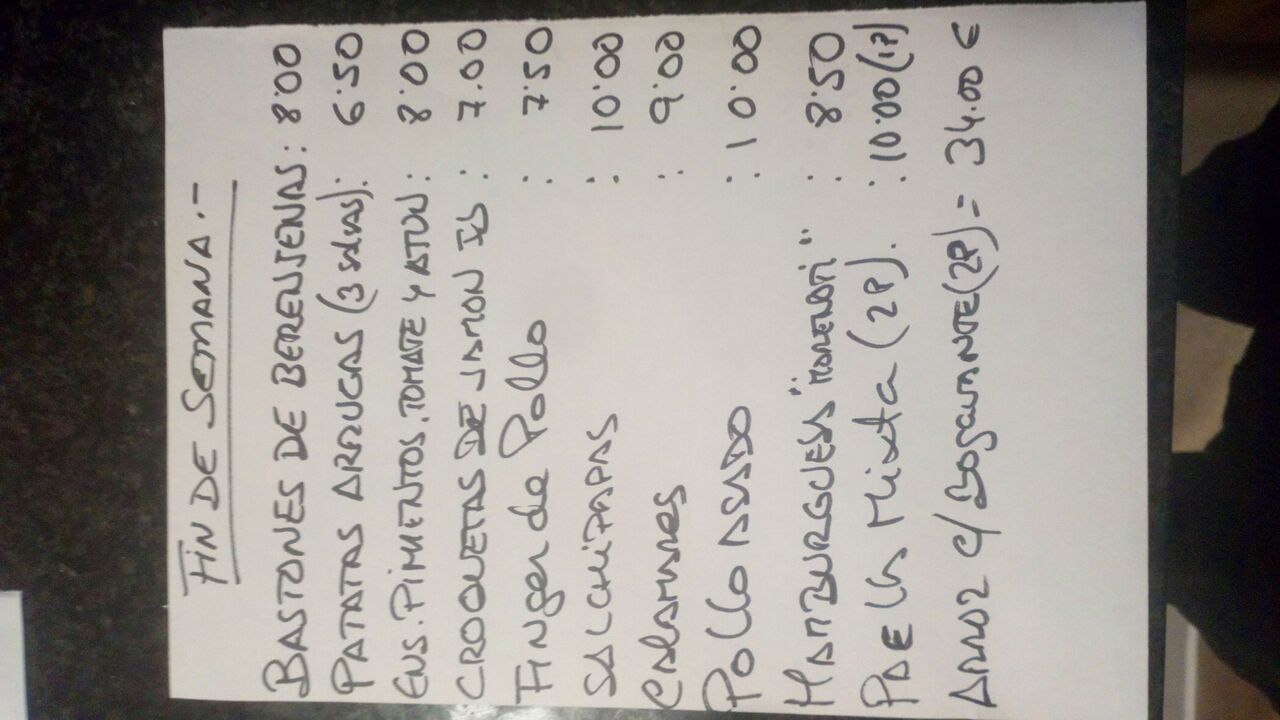 FIN DE SEMANA.-
BASTONES DE BERENJENAS: 8'00
PATATAS ARRUGAS (3 salsas): 6'50
ENS. PIMIENTOS, TOMATE Y ATUN: 8'00
CROQUETAS DE JAMON IB: 7.00
Finger de Pollo : 7'50
SALCHIPAPAS : 10'00
CALAMARES : 9'00
Pollo ASADO : 10'00
HAMBURGUESA : 8'50
PAELLA Mixta (2P). : 10'00 (1P)
ARROZ C/ Bogavante (2P) = 34.00 €